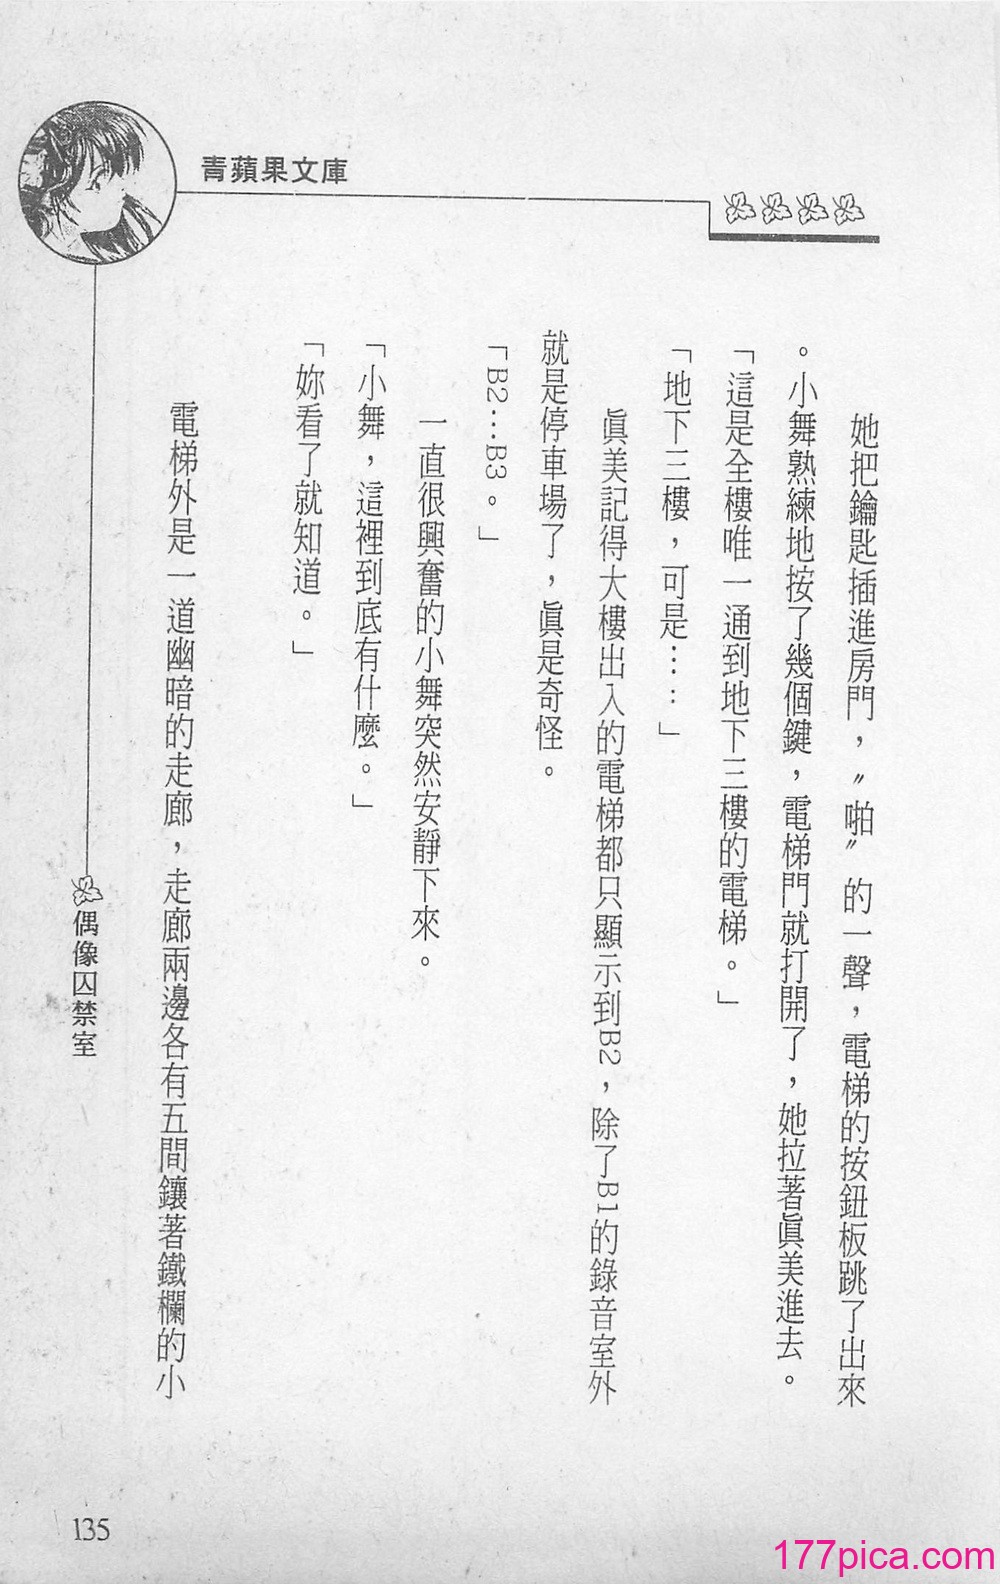 青蘋果文庫
她把鑰匙插進房門，〝啪〞的一聲，電梯的按鈕板跳了出來
。小舞熟練地按了幾個鍵，電梯門就打開了，她拉著眞美進去。
「這是全樓唯一通到地下三樓的電梯。」
「地下三樓，可是……」
眞美記得大樓出入的電梯都只顯示到B2，除了B1的錄音室外
就是停車場了，眞是奇怪。
「B2…B3。」
一直很興奮的小舞突然安靜下來。
「小舞，這裡到底有什麼。」
「妳看了就知道。」
電梯外是一道幽暗的走廊，走廊兩邊各有五間鑲著鐵欄的小
偶像囚禁室
135
177pica.com